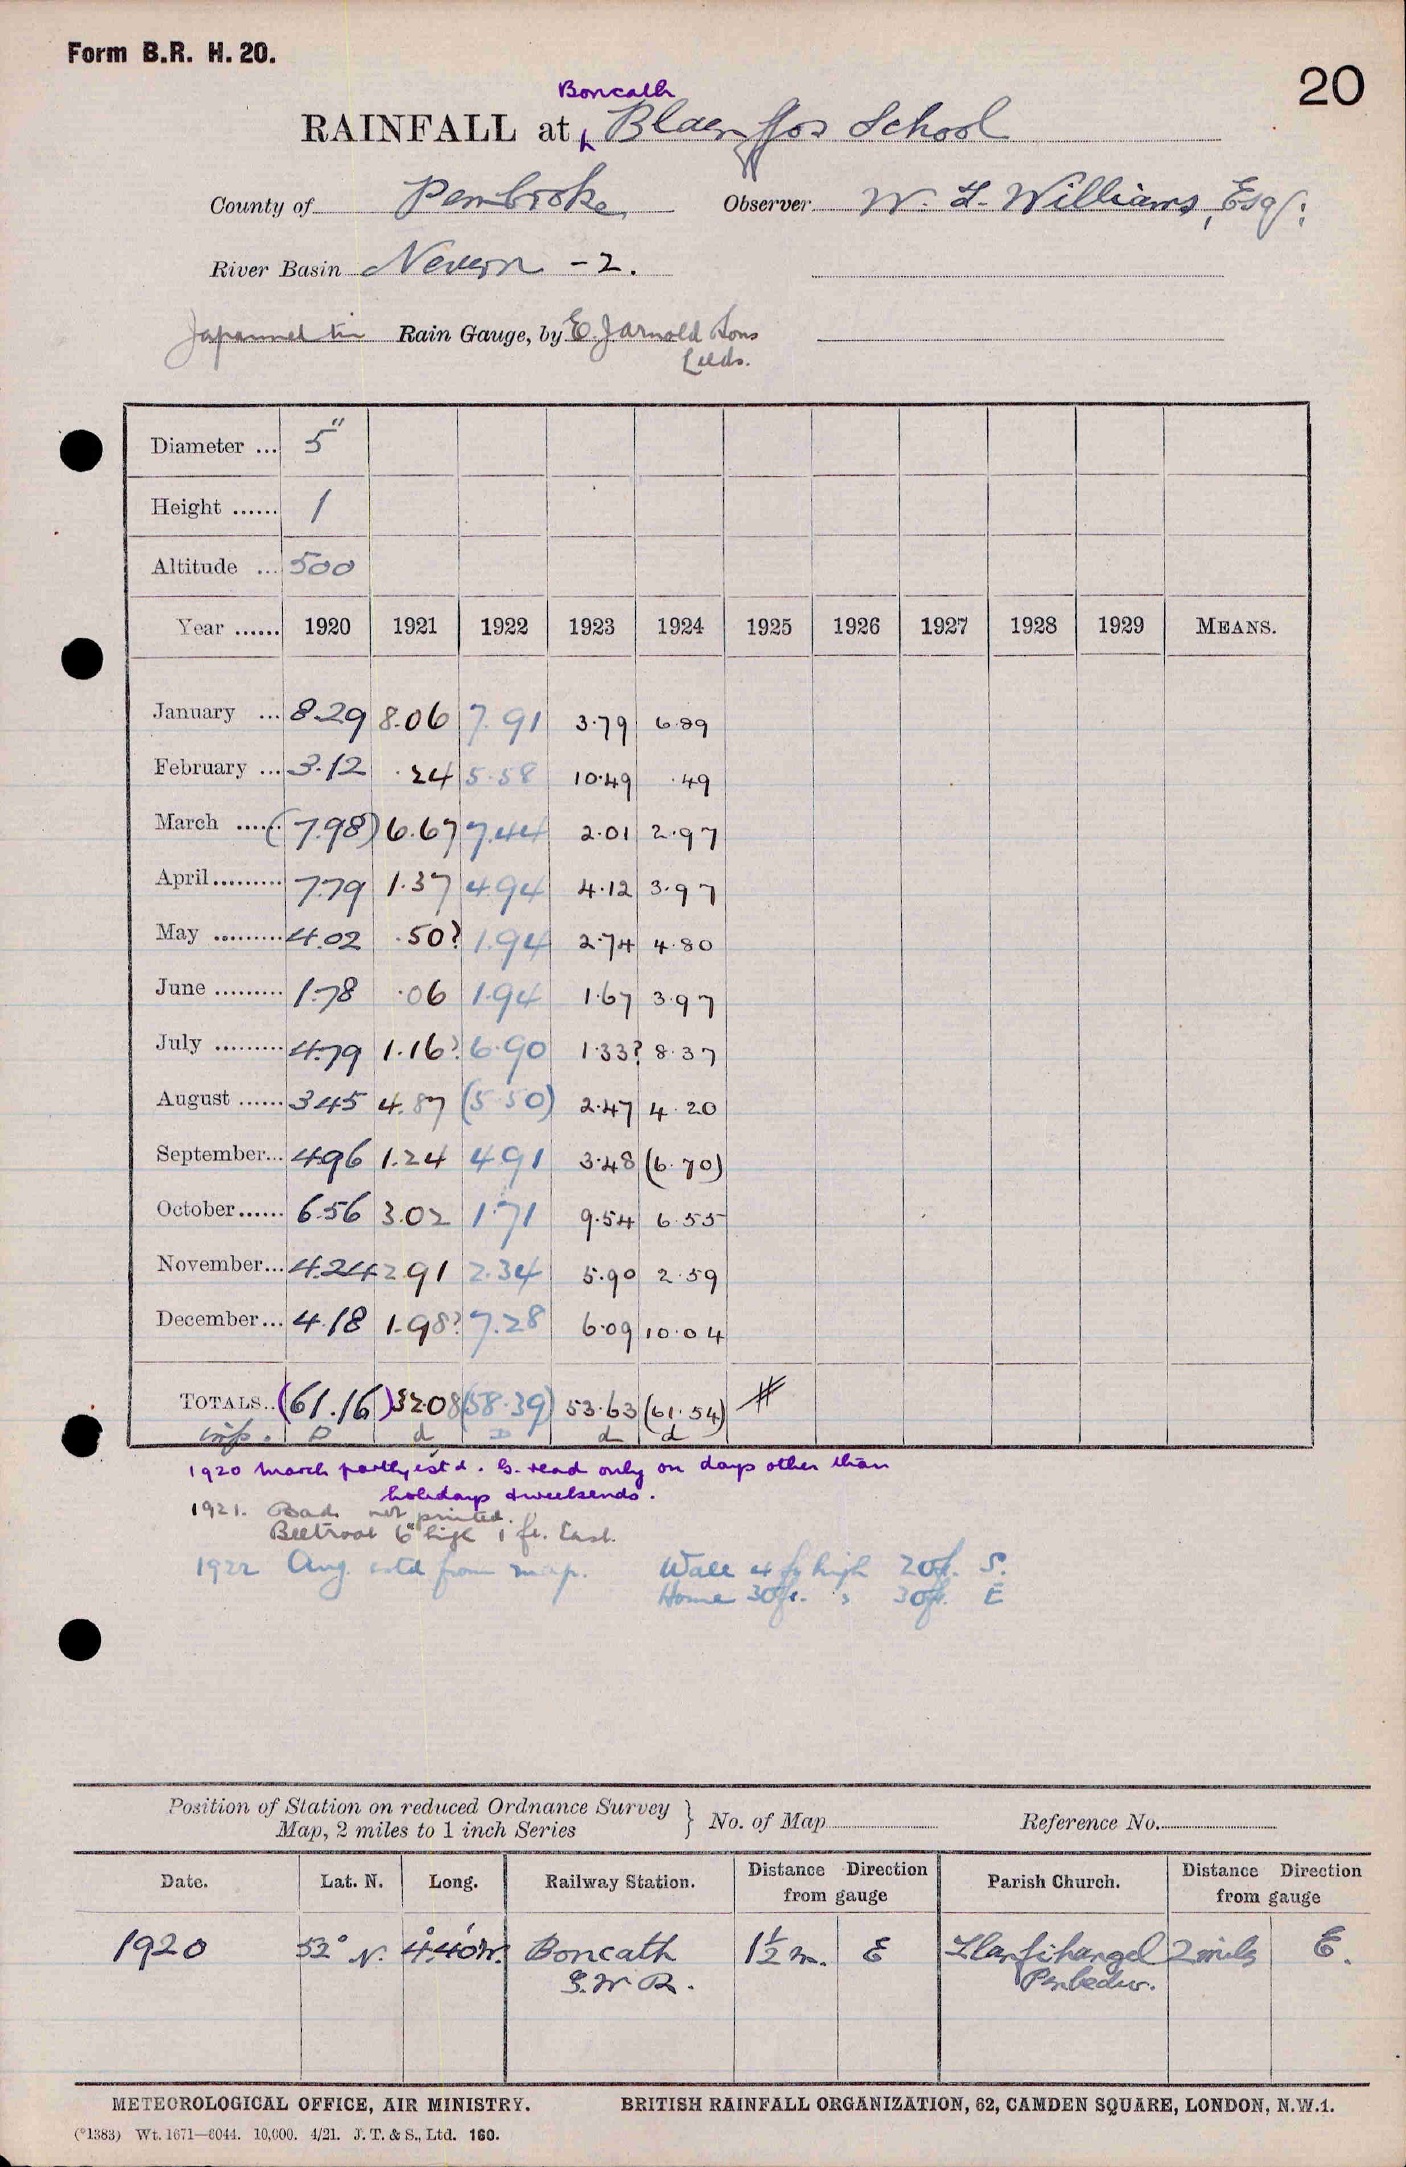 Form B.R. H. 20.
20
Boncath
RAINFALL at Blaenffos School
County of Pembroke Observer W. Williams, Esq:
River Basin Nevern - 2.
Japanned tin Rain Gauge, by E. J Arnold Sons
Leeds.
Diameter ... 5"
Height ...... 1
Altitude ... 500
Year ...... 1920 1921 1922 1923 1924 1925 1926 1927 1928 1929 MEANS.
January ... 8.29 8.06 7.91 3.79 6.89
February ... 3.12 .24 5.58 10.49 .49
March ...... (7.98) 6.67 7.44 2.01 2.97
April......... 7.79 1.37 4.94 4.12 3.97
May ......... 4.02 .50? 1.94 2.74 4.80
June ......... 1.78 .06 1.94 1.67 3.97
July ......... 4.79 1.16? 6.90 1.33? 8.37
August ...... 3.45 4.87 (5.50) 2.47 4.20
September... 4.96 1.24 4.91 3.48 (6.70)
October...... 6.56 3.02 1.71 9.54 6.55
November... 4.24 2.91 2.34 5.90 2.59
December... 4.18 1.98? 7.28 6.09 10.04
TOTALS.. (61.16) 32.08 (58.39) 53.63 (61.54) #
D d D d d
1920 March partly est'd. G. read only on days other than
holidays & weekends.
1921. Bad. not printed.
Beetroot 6" high 1 ft. East.
1922 Aug. estd from map. Wall 4 ft high 20ft. S.
Home 30ft. " 30ft. E
Position of Station on reduced Ordnance Survey
Map, 2 miles to 1 inch Series } No. of Map Reference No.
Date. Lat. N. Long. Railway Station. Distance Direction from gauge Parish Church. Distance Direction from gauge
1920 52° N. 4° 40' W. Boncath 1½ m. E Llanfihangel 2 miles E.
G.W.R. Penbedw.
METEOROLOGICAL OFFICE, AIR MINISTRY. BRITISH RAINFALL ORGANIZATION, 62, CAMDEN SQUARE, LONDON, N.W.1.
(*1383) Wt. 1671—6044. 10,000. 4/21. J. T. & S., Ltd. 160.